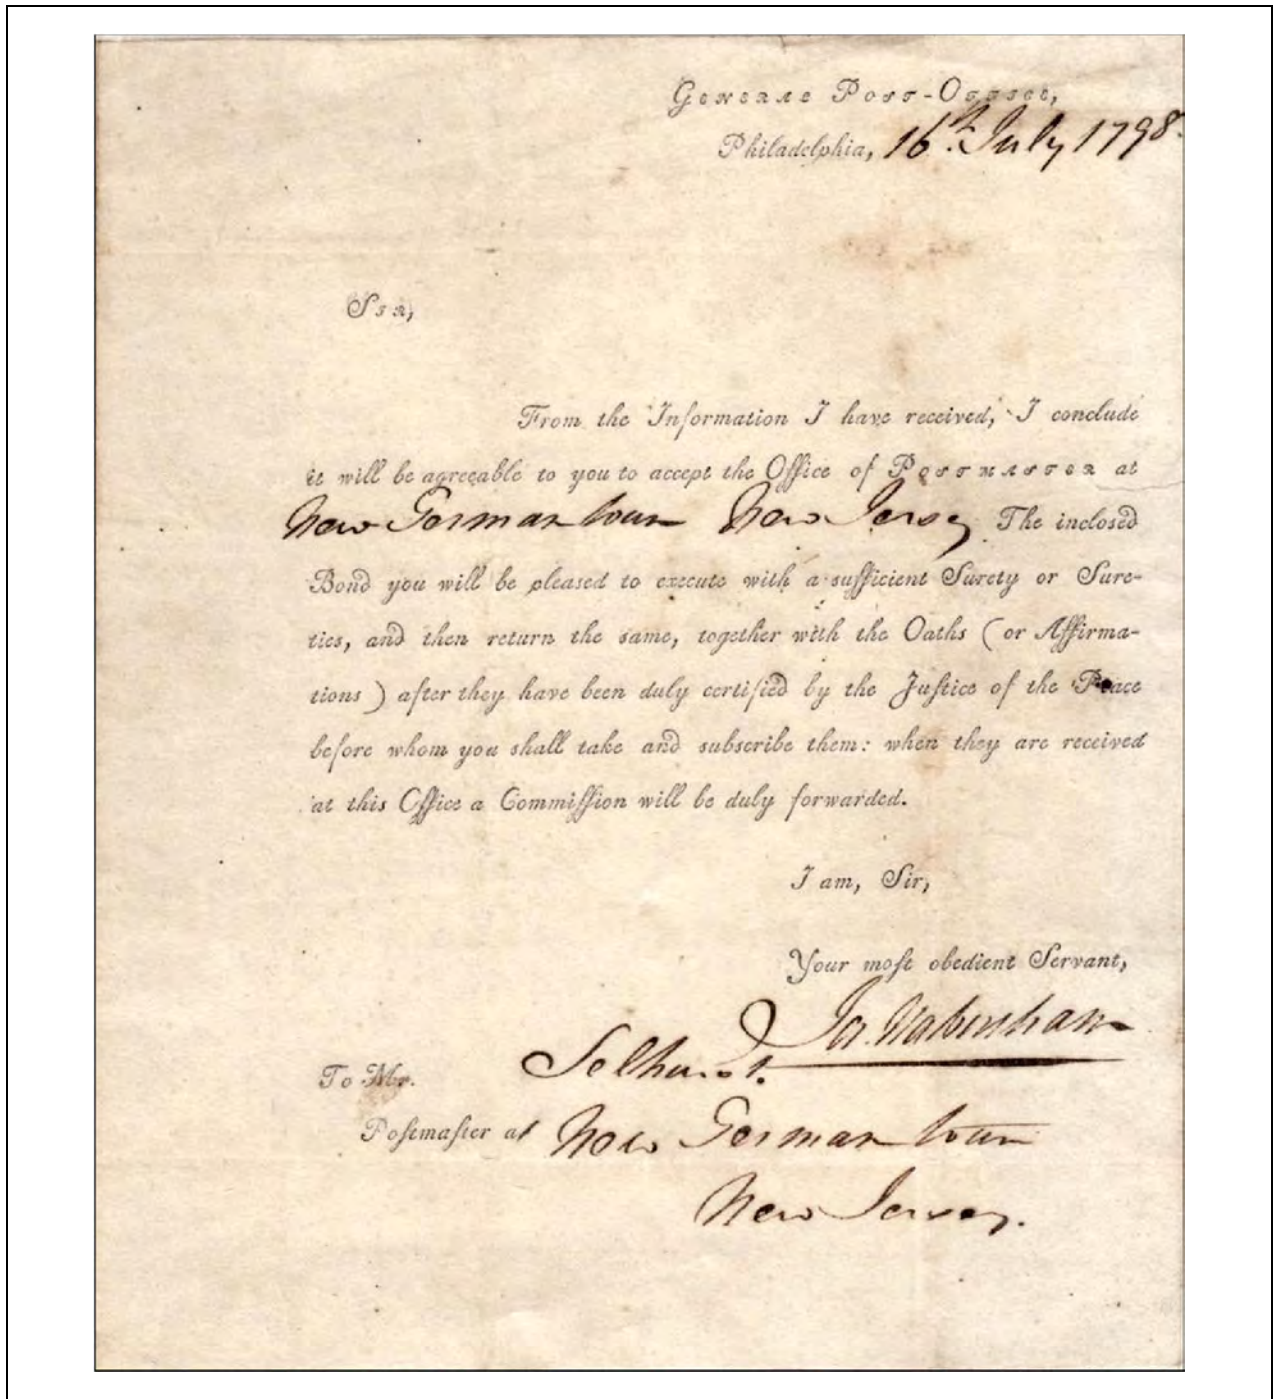 General Post-Office,
Philadelphia, 16th July 1798.
Sir,
From the Information I have received, I conclude
it will be agreeable to you to accept the Office of Postmaster at
New Germantown New Jersey. The inclosed
Bond you will be pleased to execute with a sufficient Surety or Sure-
ties, and then return the same, together with the Oaths (or Affirma-
tions) after they have been duly certified by the Justice of the Peace
before whom you shall take and subscribe them: when they are received
at this Office a Commission will be duly forwarded.
I am, Sir,
Your most obedient Servant,
Jos. Habersham
To Mr.
Postmaster at New Germantown
New Jersey.